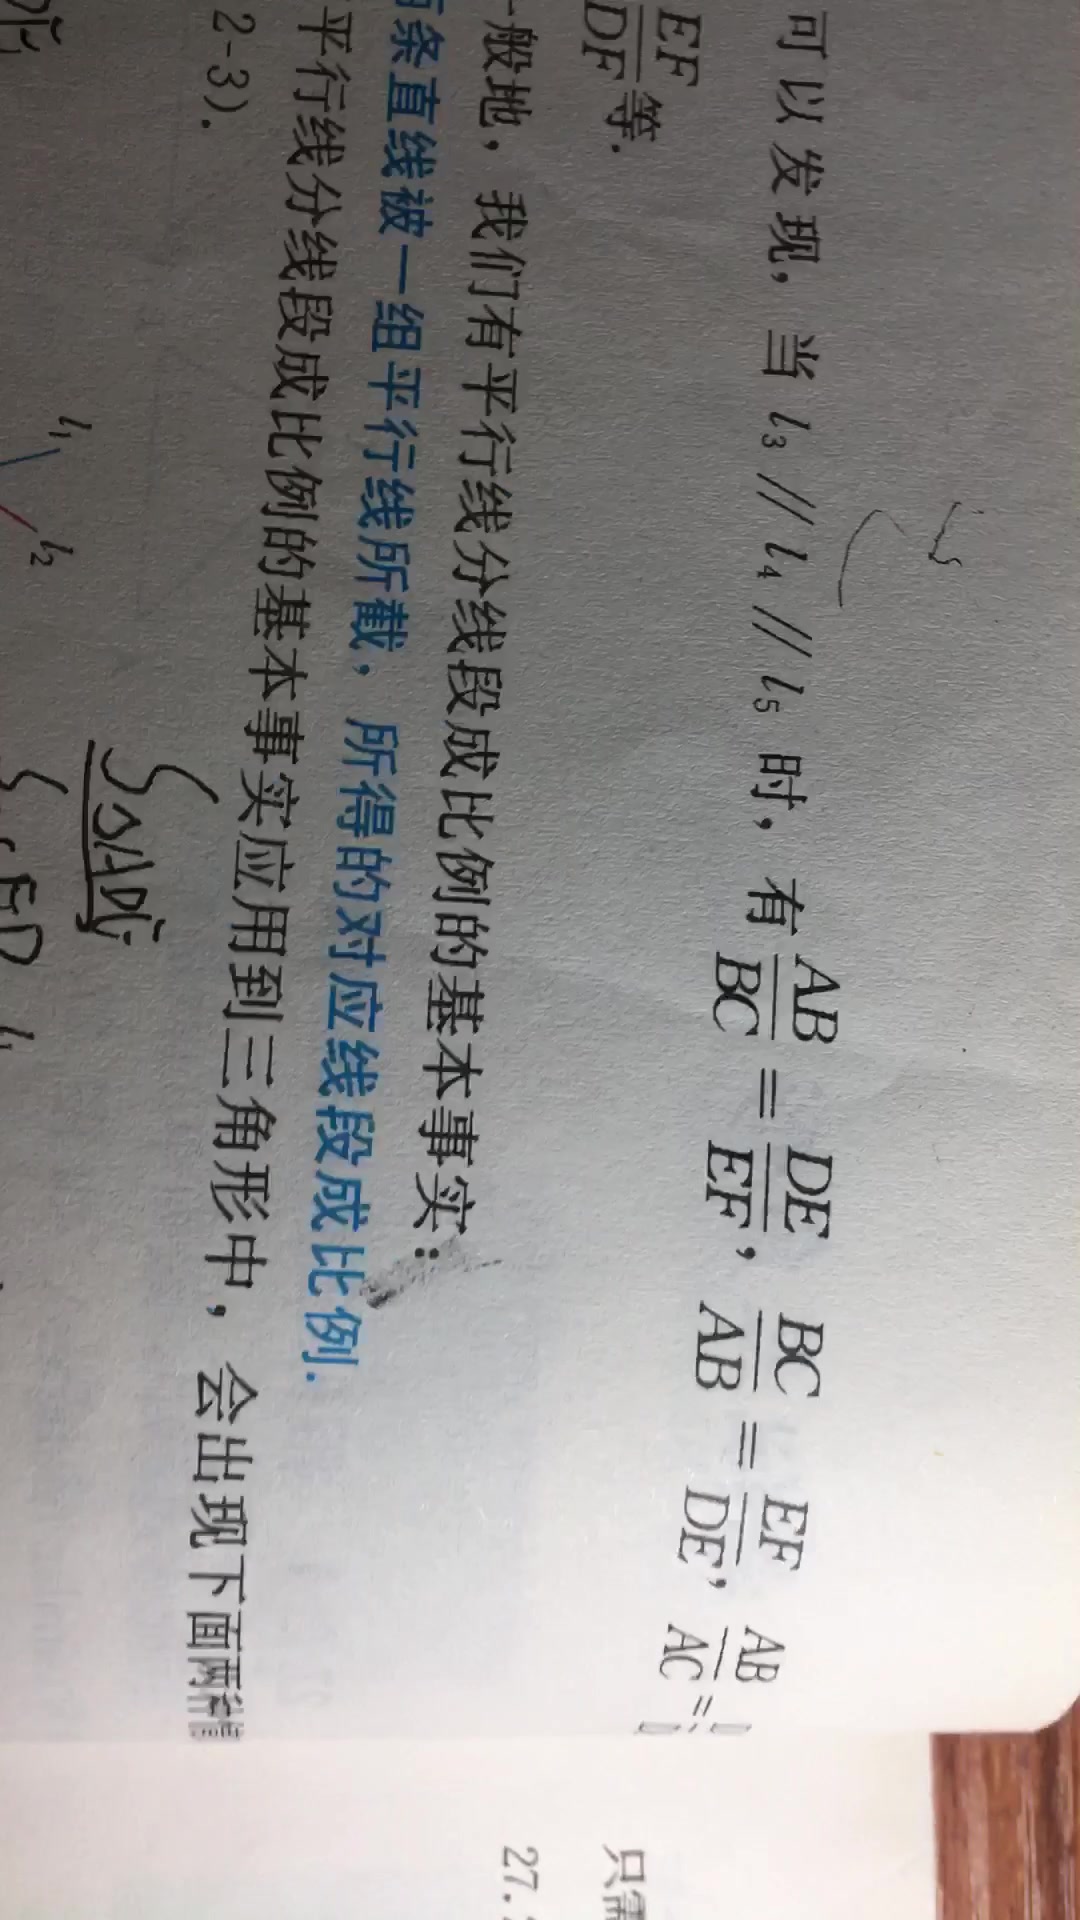 可以发现，当 l₃ // l₄ // l₅ 时，有 AB/BC = DE/EF， BC/AB = EF/DE， AB/AC =
EF/DF 等.
一般地，我们有平行线分线段成比例的基本事实：
条直线被一组平行线所截，所得的对应线段成比例.
平行线分线段成比例的基本事实应用到三角形中，会出现下面两种情
2-3).
l₁ l₂
只需
27.